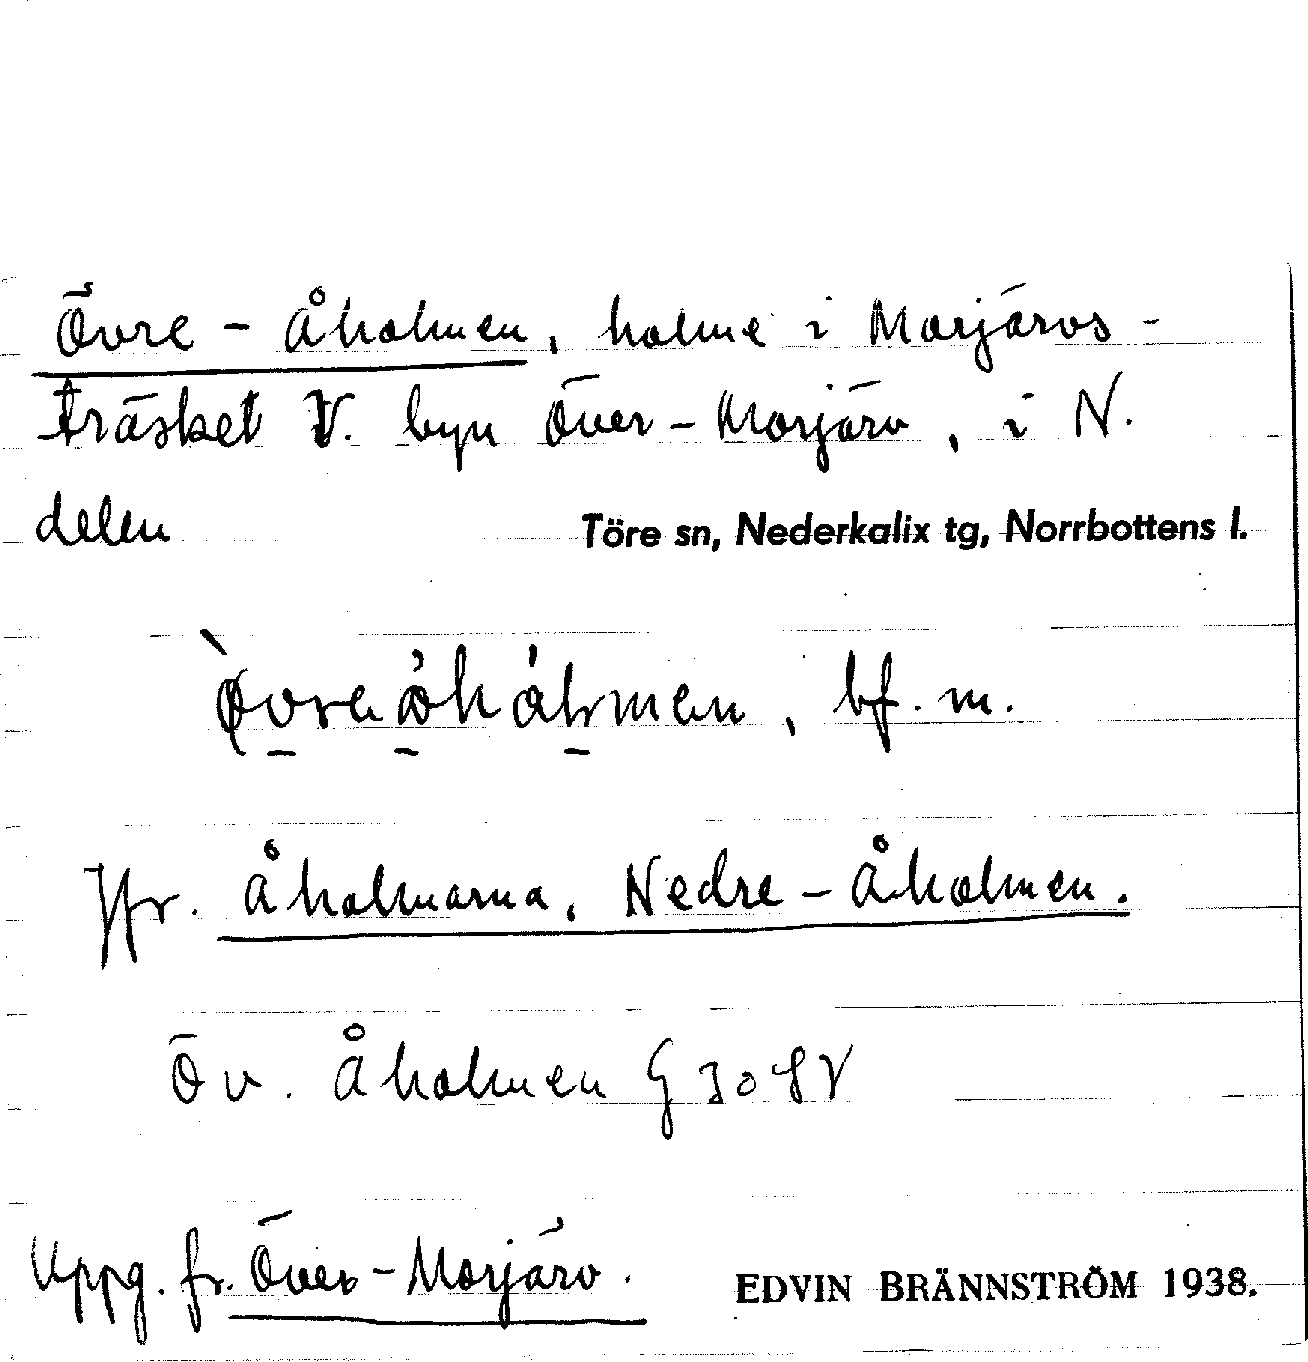 Övre - Åholmen, holme i Morjärvs -
träsket V. byn Över - Morjärv, i N.
delen
Töre sn, Nederkalix tg, Norrbottens l.
bf. m.
Jfr. Åholmarna, Nedre - Åholmen.
Öv. Åholmen G 30 SV
Uppg. fr. Över - Morjärv.
EDVIN BRÄNNSTRÖM 1938.